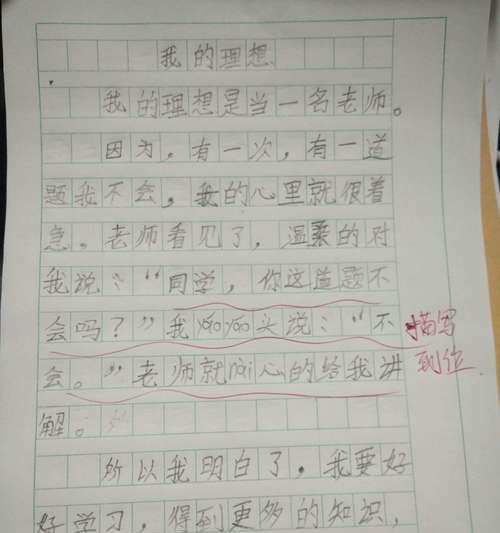 我的理想
我的理想是当一名老师。
因为，有一次，有一道
题我不会，我的心里就很着
急。老师看见了，温柔的对
我说：“同学，你这道题不
会吗？”我yáo yáo头说：“不
会。”老师就nài心的给我讲
解。
所以我明白了，我要好
好学习，得到更多的知识，
描写
到位